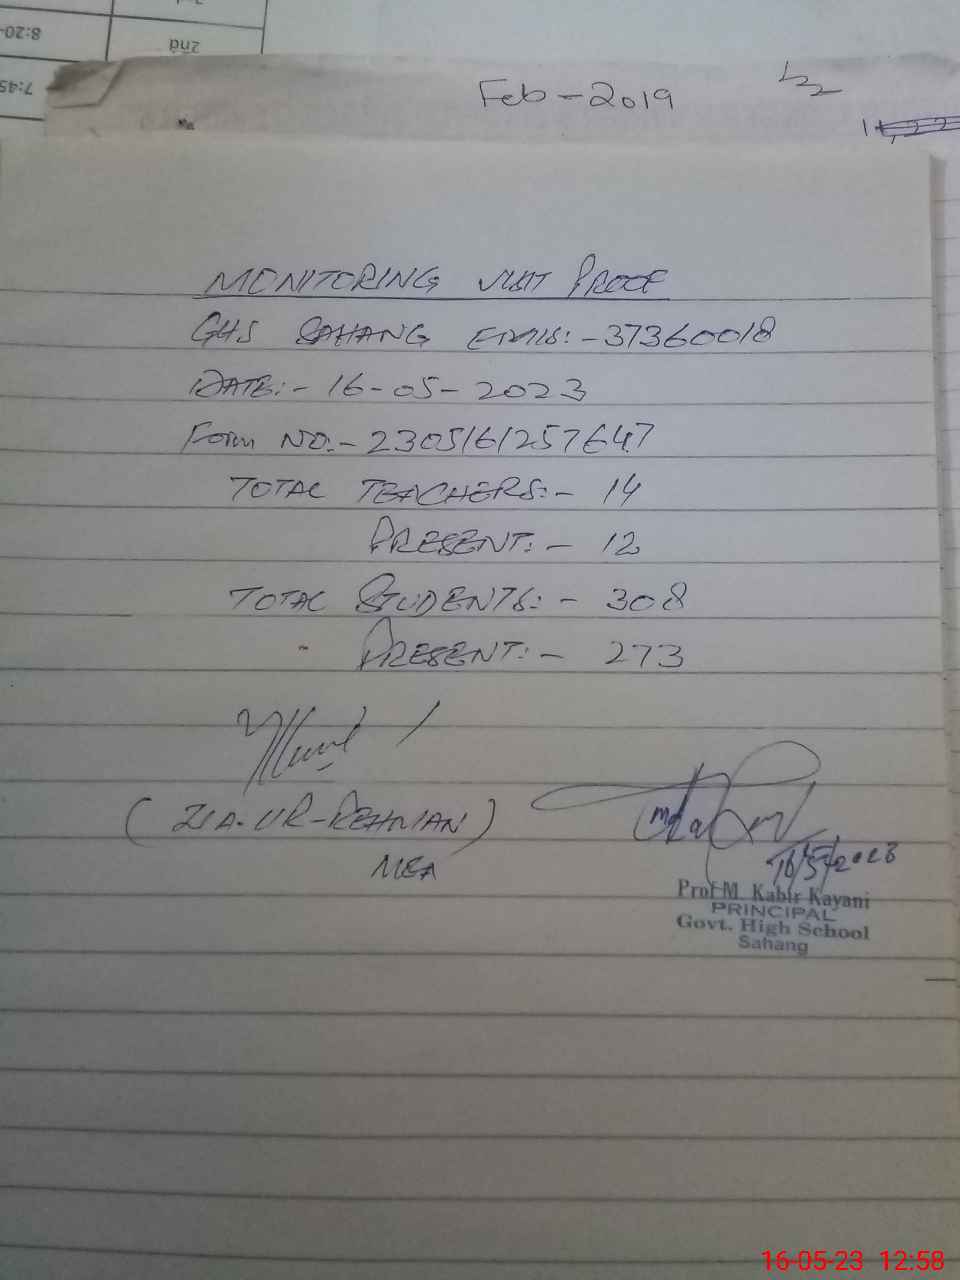 8:20-
2nd
7:45
Feb - 2019
MONITORING VISIT PROOF
GHS SAHANG EMIS:- 37360018
DATE:- 16-05-2023
Form NO:- 2305161257647
TOTAL TEACHERS:- 14
PRESENT:- 12
TOTAL STUDENTS:- 308
PRESENT:- 273
(ZIA-UR-REHMAN)
MEA
16/5/2023
Prof M. Kabir Kayani
PRINCIPAL
Govt. High School
Sahang
16-05-23 12:58